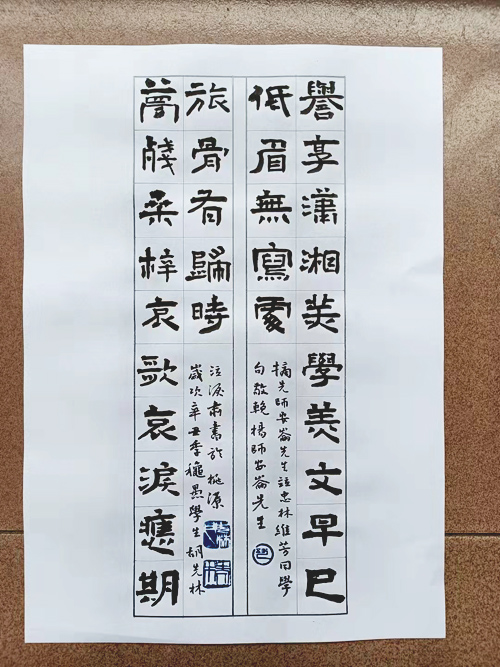 譽享瀟湘美學美文早已
低眉無寫處
摘先師安崙先生誄忠林維芳同學
句敬輓楊師安崙先生
牋桑梓哀歌哀淚應期
旅骨有歸時
泣淚肅書於桃源
歲次辛丑季穐愚學生胡先林